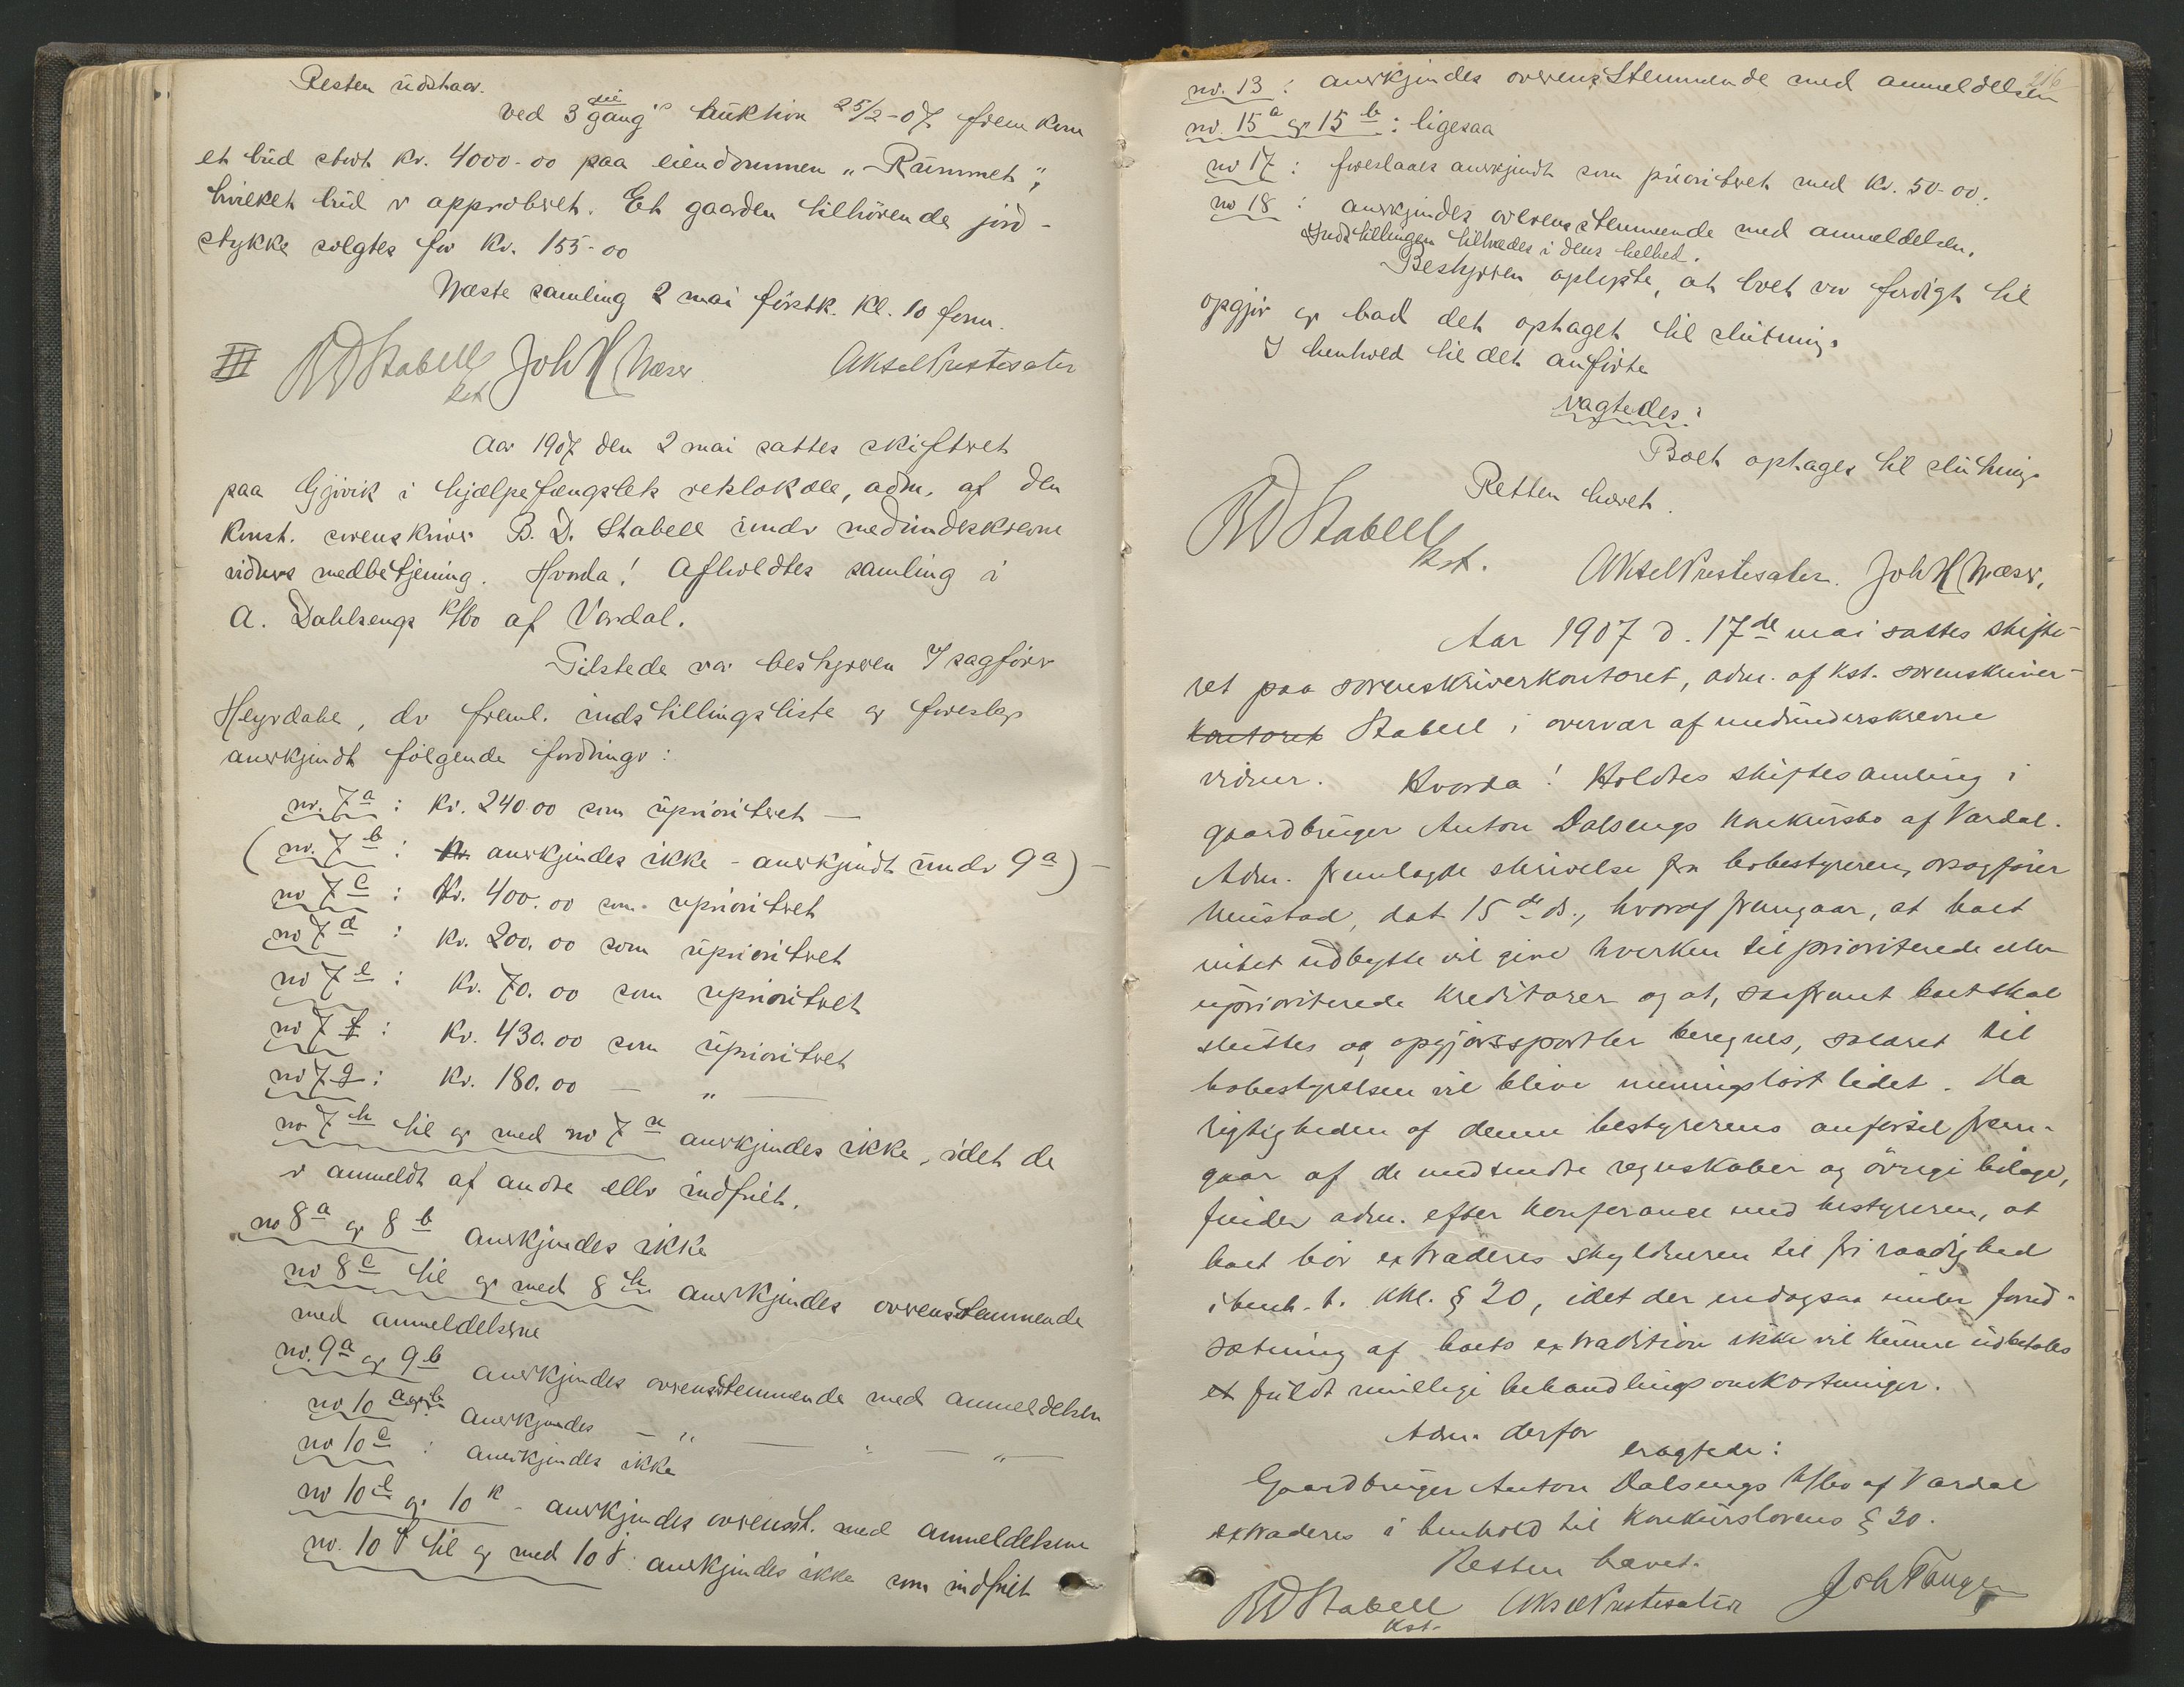 Resten udstaar.
ved 3die gangs auktion 25/2-07 fremkom
et bud stort kr. 4000-00 paa eiendommen "Rummet",
hvilket bud er approberet. Et gaarden tilhørende jord-
stykke solgtes for kr. 155-00
Næste samling 2 mai førstk. kl. 10 form.
III BDStabell kst Joh H Næser Aksel Prestesater
Aar 1907 den 2 mai sattes skifteret
paa Gjøvik i hjælpefængslets retslokale, adm. af den
konst. sorenskriver B. D. Stabell under medundeskrevne
vidners medbetjening. Hvorda! Afholdtes samling i
A. Dahlsengs k/bo af Vardal.
Tilstede var bestyreren O sagfører
Heyrdahl, der freml. indstillingsliste og foreslog
anerkjendt følgende fordringer:
nr. 7a: kr. 240.00 som uprioriteret —
(nr. 7b: kr. anerkjendes ikke - anerkjendt under 9a) —
nr 7c: kr. 400.00 som uprioriteret
nr 7d: kr. 200.00 som uprioriteret
nr 7e: kr. 70.00 som uprioriteret
nr 7f: kr. 430.00 som uprioriteret
nr 7g: kr. 180.00 — " —
nr 7h til og med nr 7n anerkjendes ikke, idet de
er anmeldt af andre eller indfriet.
nr 8a og 8b anerkjendes ikke
nr 8c til og med 8h anerkjendes overensstemmende
med anmeldelserne
nr. 9a og 9b anerkjendes overensstemmende med anmeldelsen
nr 10 a og b: anerkjendes — " — " — " —
nr 10c: anerkjendes ikke
nr 10e og 10k - anerkjendes overensst. med anmeldelserne
nr. 10f til og med 10j: anerkjendes ikke som indfriet
216
nr. 13: anerkjendes overensstemmende med anmeldelsen
nr. 15a og 15b: ligesaa
nr 17: foreslaaes anerkjendt som prioriteret med kr. 50-00.
nr 18: anerkjendes overensstemmende med anmeldelsen.
Indstillingen tiltrædes i dens helhed.
Bestyreren oplyste, at boet var færdigt til
opgjør og bad det optaget til slutning.
I henhold til det anførte
eragtedes:
Boet optages til slutning
Retten hævet.
BDStabell kst. Aksel Prestesater. Joh H Næser.
Aar 1907 d. 17de mai sattes skifte-
ret paa sorenskriverkontoret, adm. af kst. sorenskriver-
kontoret Stabell i overvær af medunderskrevne
vidner. Hvorda! Holdtes skiftesamling i
gaardbruger Anton Dalsengs konkursbo af Vardal.
Adm. fremlagde skrivelse fra bobestyreren, orsagfører
Mustad, dat 15de ds., hvoraf fremgaar, at boet
intet udbytte vil give hverken til prioriterede eller
uprioriterede kreditorer og at, saafremt boet skal
sluttes og opgjørssportler beregnes, salæret til
bobestyrelsen vil blive meningsløst lidet. Da
rigtigheden af denne bestyrerens anførsel frem-
gaar af de medsendte regnskaber og øvrige bilage,
finder adm. efter konferance med bestyreren, at
boet bør extraderes skyldneren til fri raadighed
i henh. t. kkl. § 20, idet der endogsaa under forud-
sætning af boets extradition ikke vil kunne udbetales
et fuldt rimelige behandlingsomkostninger.
Adm. derfor
eragtede:
Gaardbruger Anton Dalsengs k/bo af Vardal
extraderes i henhold til konkurslovens § 20.
Retten hævet.
BDStabell kst. Aksel Prestesater Joh Tangen